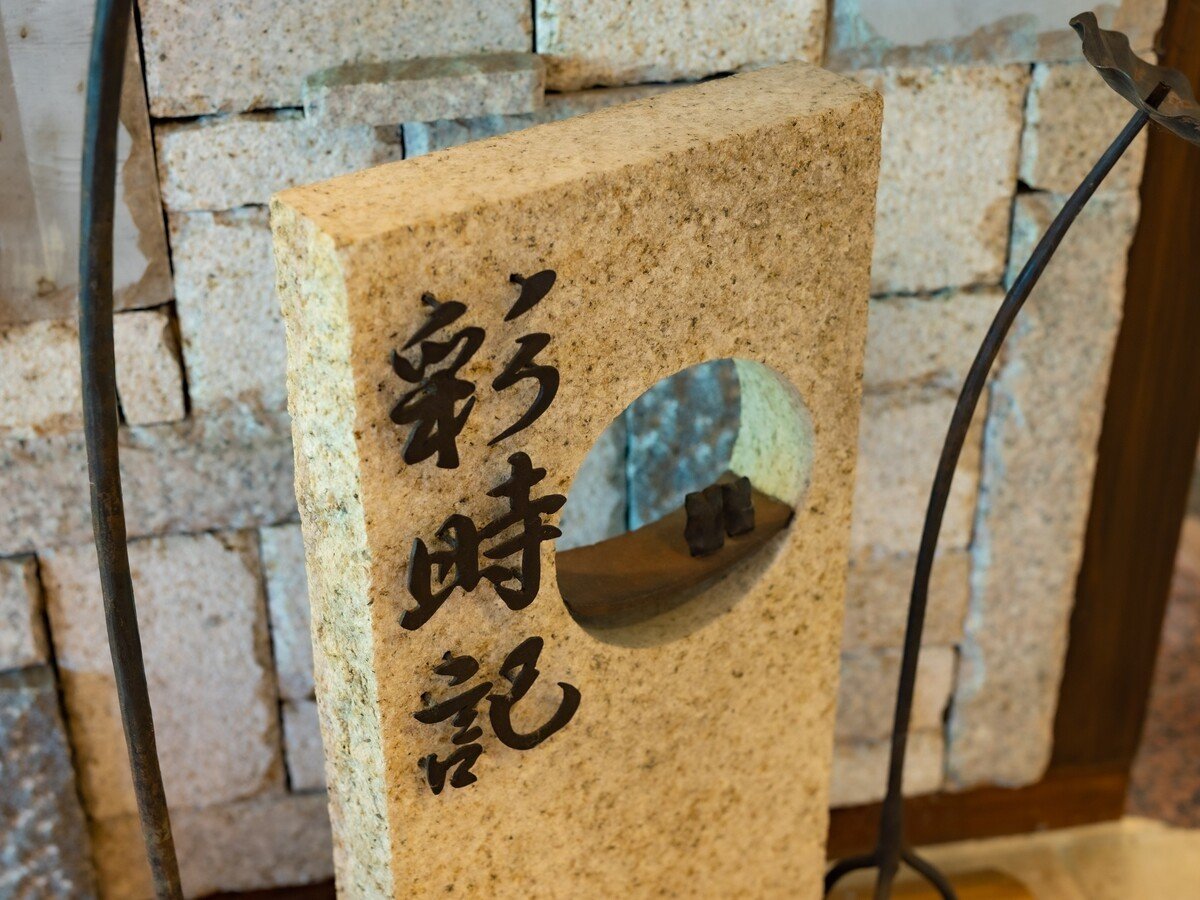 彩時記